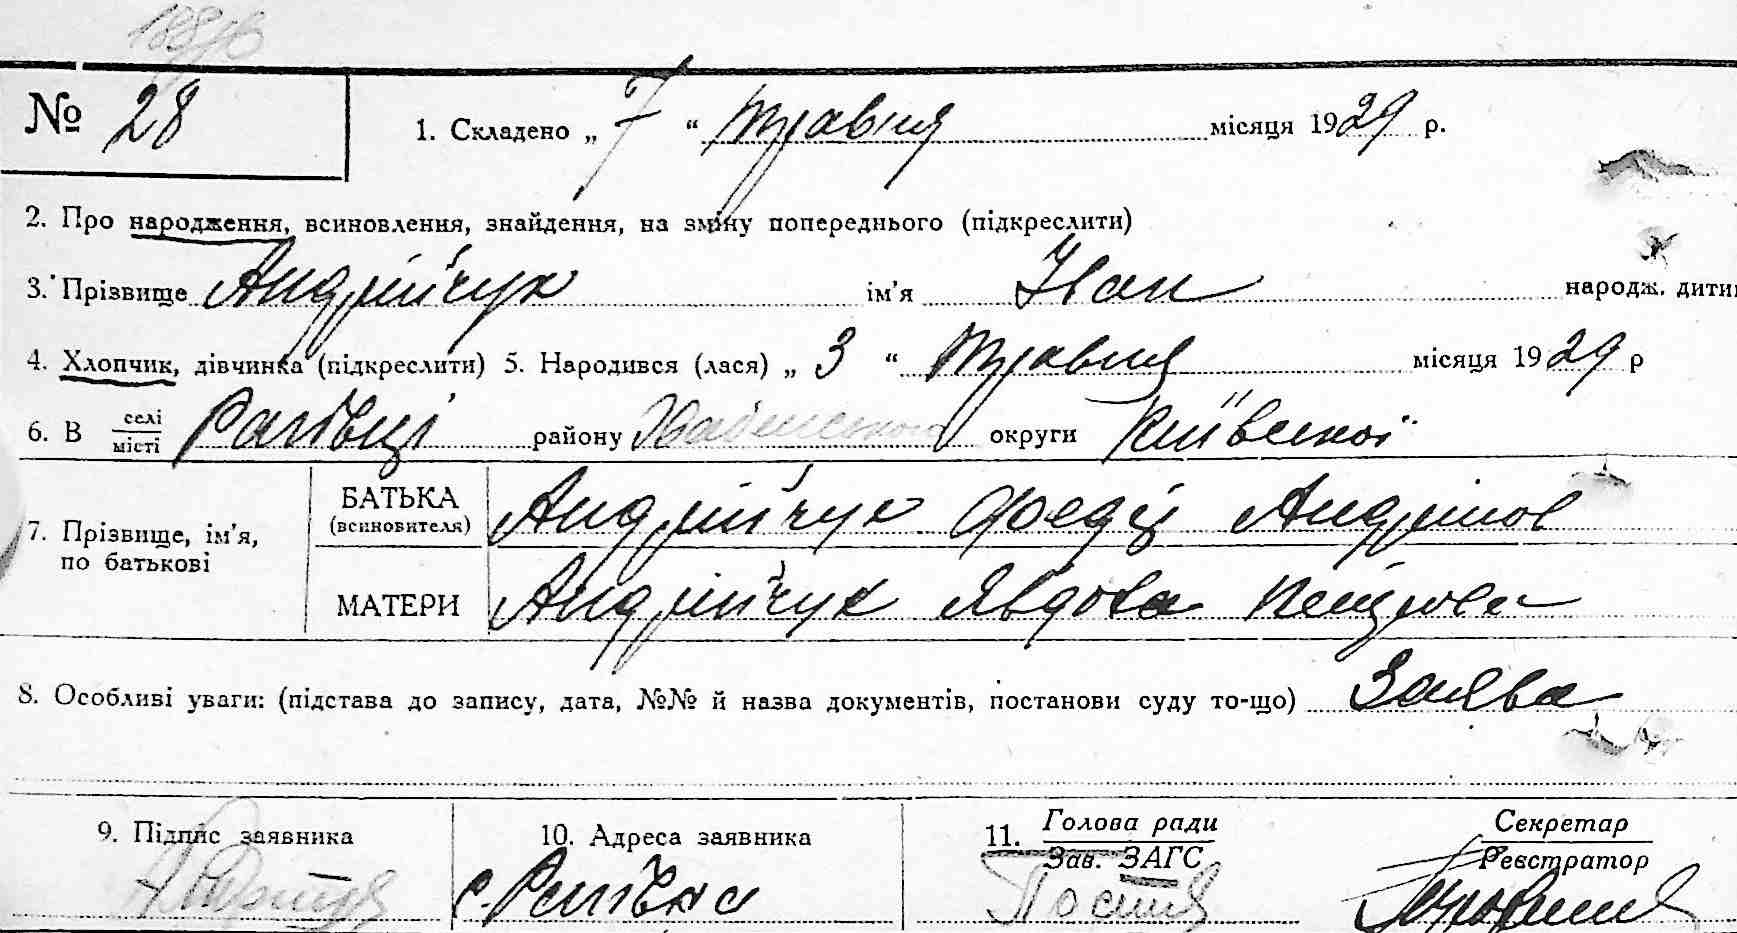 № 28
1. Складено „ 7 “ травня місяця 1929 р.
2. Про народження, всиновлення, знайдення, на зміну попереднього (підкреслити)
3. Прізвище Андрійчук ім'я Іван народж. дити
4. Хлопчик, дівчинка (підкреслити) 5. Народився (лася) „ 3 “ травня місяця 1929 р
6. В селі місті Рагівці району Хабенського округи Київської
7. Прізвище, ім'я, по батькові
БАТЬКА (всиновителя) Андрійчук Федір Андріїов
МАТЕРИ Андрійчук Явдоха Петрова
8. Особливі уваги: (підстава до запису, дата, №№ й назва документів, постанови суду то-що) Заява
9. Підпис заявника
10. Адреса заявника
11. Голова ради
Зав. ЗАГС
Секретар
Реєстратор